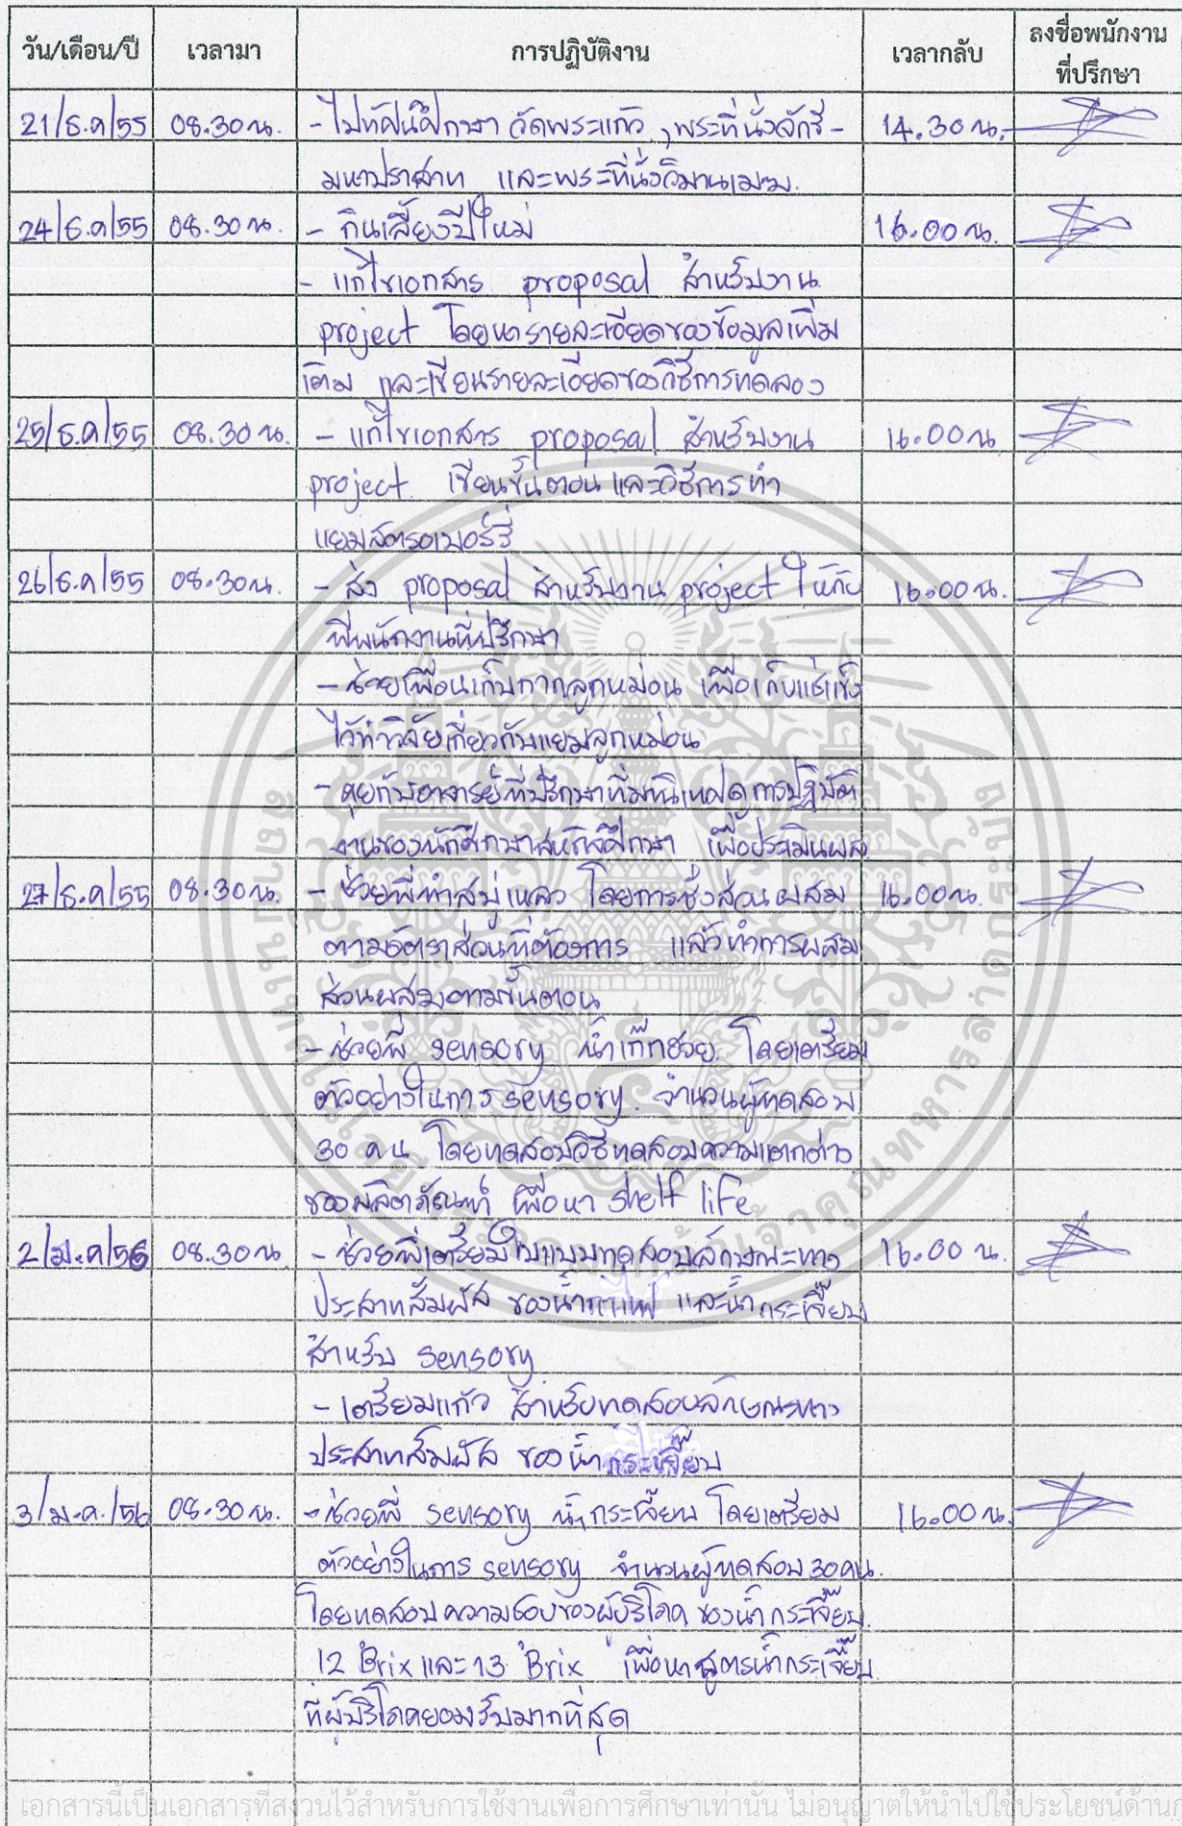 วัน/เดือน/ปี เวลามา การปฏิบัติงาน เวลากลับ ลงชื่อพนักงาน
ที่ปรึกษา
21/ธ.ค/55 08.30 น. - ไปทัศนศึกษา วัดพระแก้ว , พระที่นั่งจักรี - 14.30 น.
มหาปราสาท และพระที่นั่งวิมานเมฆ.
24/ธ.ค/55 08.30 น. - กินเลี้ยงปีใหม่ 16.00 น.
- แก้ไขเอกสาร proposal สำหรับงาน
project โดยหารายละเอียดของข้อมูลเพิ่ม
เติม และเขียนรายละเอียดของวิธีการทดลอง
25/ธ.ค/55 08.30 น. - แก้ไขเอกสาร proposal สำหรับงาน 16.00 น
project เขียนขั้นตอน และวิธีการทำ
แยมสตรอเบอร์รี่
26/ธ.ค/55 08.30 น. - ส่ง proposal สำหรับงาน project ให้กับ 16.00 น.
พี่พนักงานที่ปรึกษา
- ช่วยเพื่อนเก็บกากลูกหม่อน เพื่อเก็บแช่แข็ง
ไว้ทำวิจัยเกี่ยวกับแยมลูกหม่อน
- คุยกับอาจารย์ที่ปรึกษาที่มานิเทศดูการปฏิบัติ
งานของนักศึกษาสหกิจศึกษา เพื่อประเมินผล
27/ธ.ค/55 08.30 น. - ช่วยพี่ทำสบู่เหลว โดยการชั่งส่วนผสม 16.00 น.
ตามอัตราส่วนที่ต้องการ แล้วทำการผสม
ส่วนผสมตามขั้นตอน
- ช่วยพี่ sensory น้ำเก๊กฮวย โดยเตรียม
ตัวอย่างในการ sensory. จำนวนผู้ทดสอบ
30 คน โดยทดสอบวิธีทดสอบความแตกต่าง
ของผลิตภัณฑ์ เพื่อหา shelf life
2/ม.ค/56 08.30 น. - ช่วยพี่เตรียมใบแบบทดสอบลักษณะทาง 16.00 น.
ประสาทสัมผัส ของน้ำกาแฟ และน้ำกระเจี๊ยบ
สำหรับ sensory
- เตรียมแก้ว สำหรับทดสอบลักษณะทาง
ประสาทสัมผัส ของน้ำกระเจี๊ยบ
3/ม.ค./56 08.30 น. - ช่วยพี่ sensory น้ำกระเจี๊ยบ โดยเตรียม 16.00 น.
ตัวอย่างในการ sensory จำนวนผู้ทดสอบ 30 คน.
โดยทดสอบความชอบของผู้บริโภค ของน้ำกระเจี๊ยบ
12 °Brix และ 13 °Brix เพื่อหาสูตรน้ำกระเจี๊ยบ
ที่ผู้บริโภคยอมรับมากที่สุด
เอกสารนี้เป็นเอกสารที่สงวนไว้สำหรับการใช้งานเพื่อการศึกษาเท่านั้น ไม่อนุญาตให้นำไปใช้ประโยชน์ด้านก